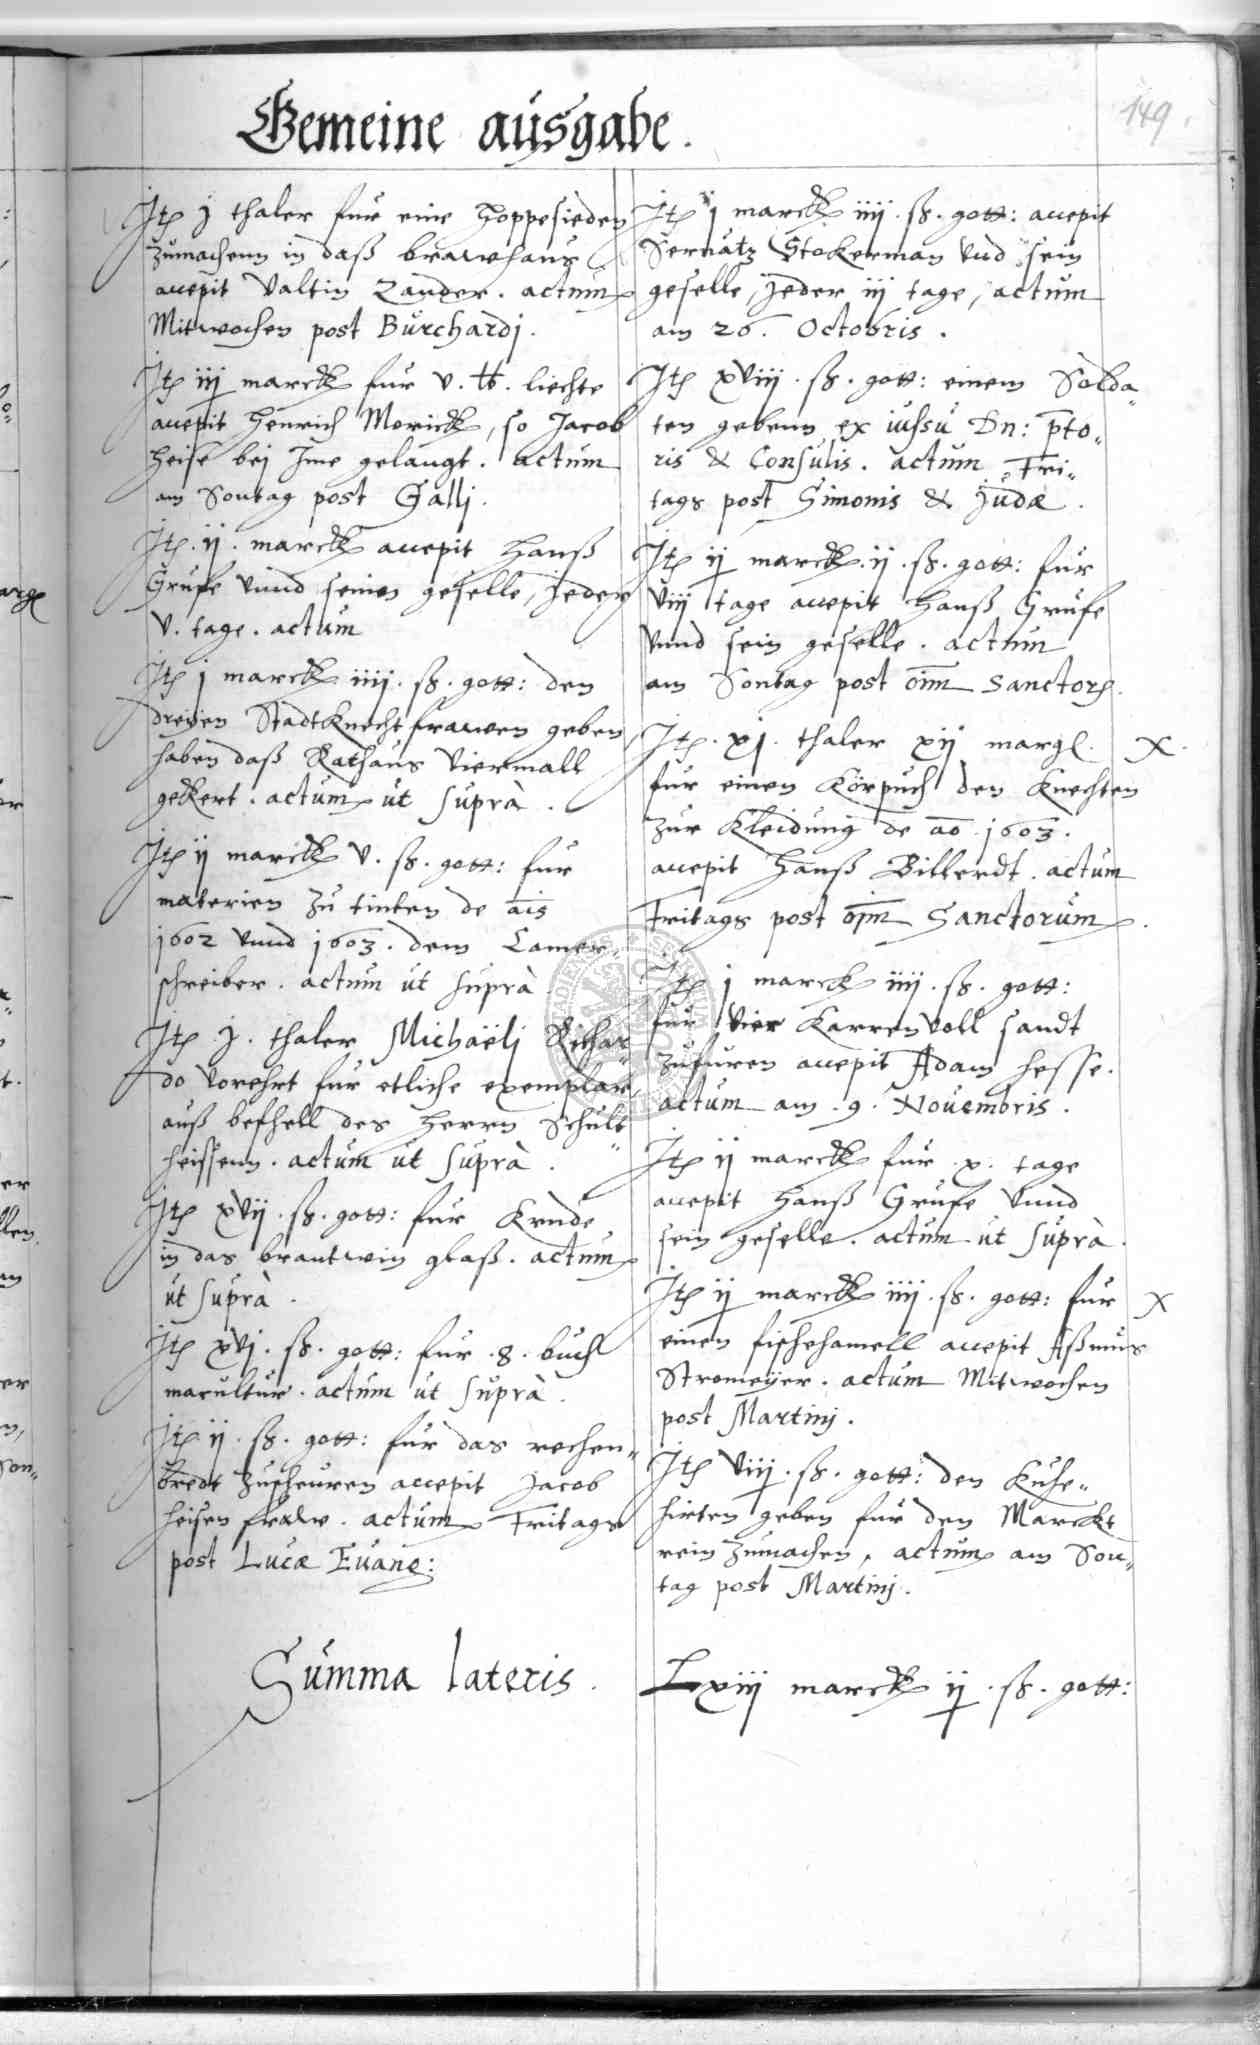 149.
Gemeine ausgabe.
Itē j thaler fur eine Hoppesieden
zumachenn in daß brawhaus
accepit Valtin Zander. actum
Mitwochen post Burchardj.
Itē iij marckℓ fur v. ℔. liechte
accepit Henrich Morickℓ, so Jacob
Heise bej Ime gelangt. actum
am Sontag post Gallj.
Itē. ij. marckℓ accepit Hanß
Grufe vnnd seinen geselle, jeder
v. tage. actum
Itē j marckℓ iiij. ß. gott: den
dreyen Stadtknecht frawen geben
haben daß Rathaus viermall
gekert. actum ut suprà.
Itē ij marckℓ v. ß. gott: fur
materien zu tinten de ais
1602 vnnd 1603. dem Camer„
schreiber. actum ut suprà
Itē j. thaler Michaëlj Richar„
do vorehrt fur etliche exemplar
auß befhell des Herrn Schult„
heissenn. actum ut suprà.
Itē xvij. ß. gott: fur Krude
in das brantwin glaß. actum
ut suprà.
Itē xvj. ß. gott: fur .8. buch
maculatur. actum ut suprà.
Itē ij. ß. gott: fur das rechen„
bredt zuscheuren accepit Jacob
Heisen fraw. actum Fritags
post Lucæ Euang:
Itē j marckℓ iiij. ß. gott: accepit
Seruatz Stokerman vnd sein
geselle, jeder iij tage, actum
am 26. Octobris.
Itē xviij. ß. gott: einem Solda„
ten gebenn ex iussu Dn: p̄to„
ris & Consulis. actum Fri„
tags post Simonis & Judæ.
Itē ij marckℓ. ij. ß. gott: fur
viij tage accepit Hanß Grufe
vnnd sein geselle. actum
am Sontag post oīm sanctorℓ.
Itē. xj. thaler xij margℓ. X.
fur einen Körpuch den Knechten
zur Kleidung de ao 1603.
accepit Hanß Billerdt. actum
Fritags post oīm Sanctorum.
Itē j marckℓ iiij. ß. gott:
fur vier Karrenvoll sandt
zufuren accepit Adam Hesse.
actum am .9. Nouembris.
Itē ij marckℓ fur x. tage
accepit Hanß Grufe vnnd
sein geselle. actum ut suprà.
Itē ij marckℓ iiij. ß. gott: fur X
einen fischehamell accepit Aßmus
Stromeÿer. actum Mitwochen
post Martinj.
Itē viij. ß. gott: den Kuhe„
hirten geben fur den Marckt
rein zumachen, actum am Son„
tag post Martinj.
Summa lateris. Lxiij marckℓ ij. ß. gott: